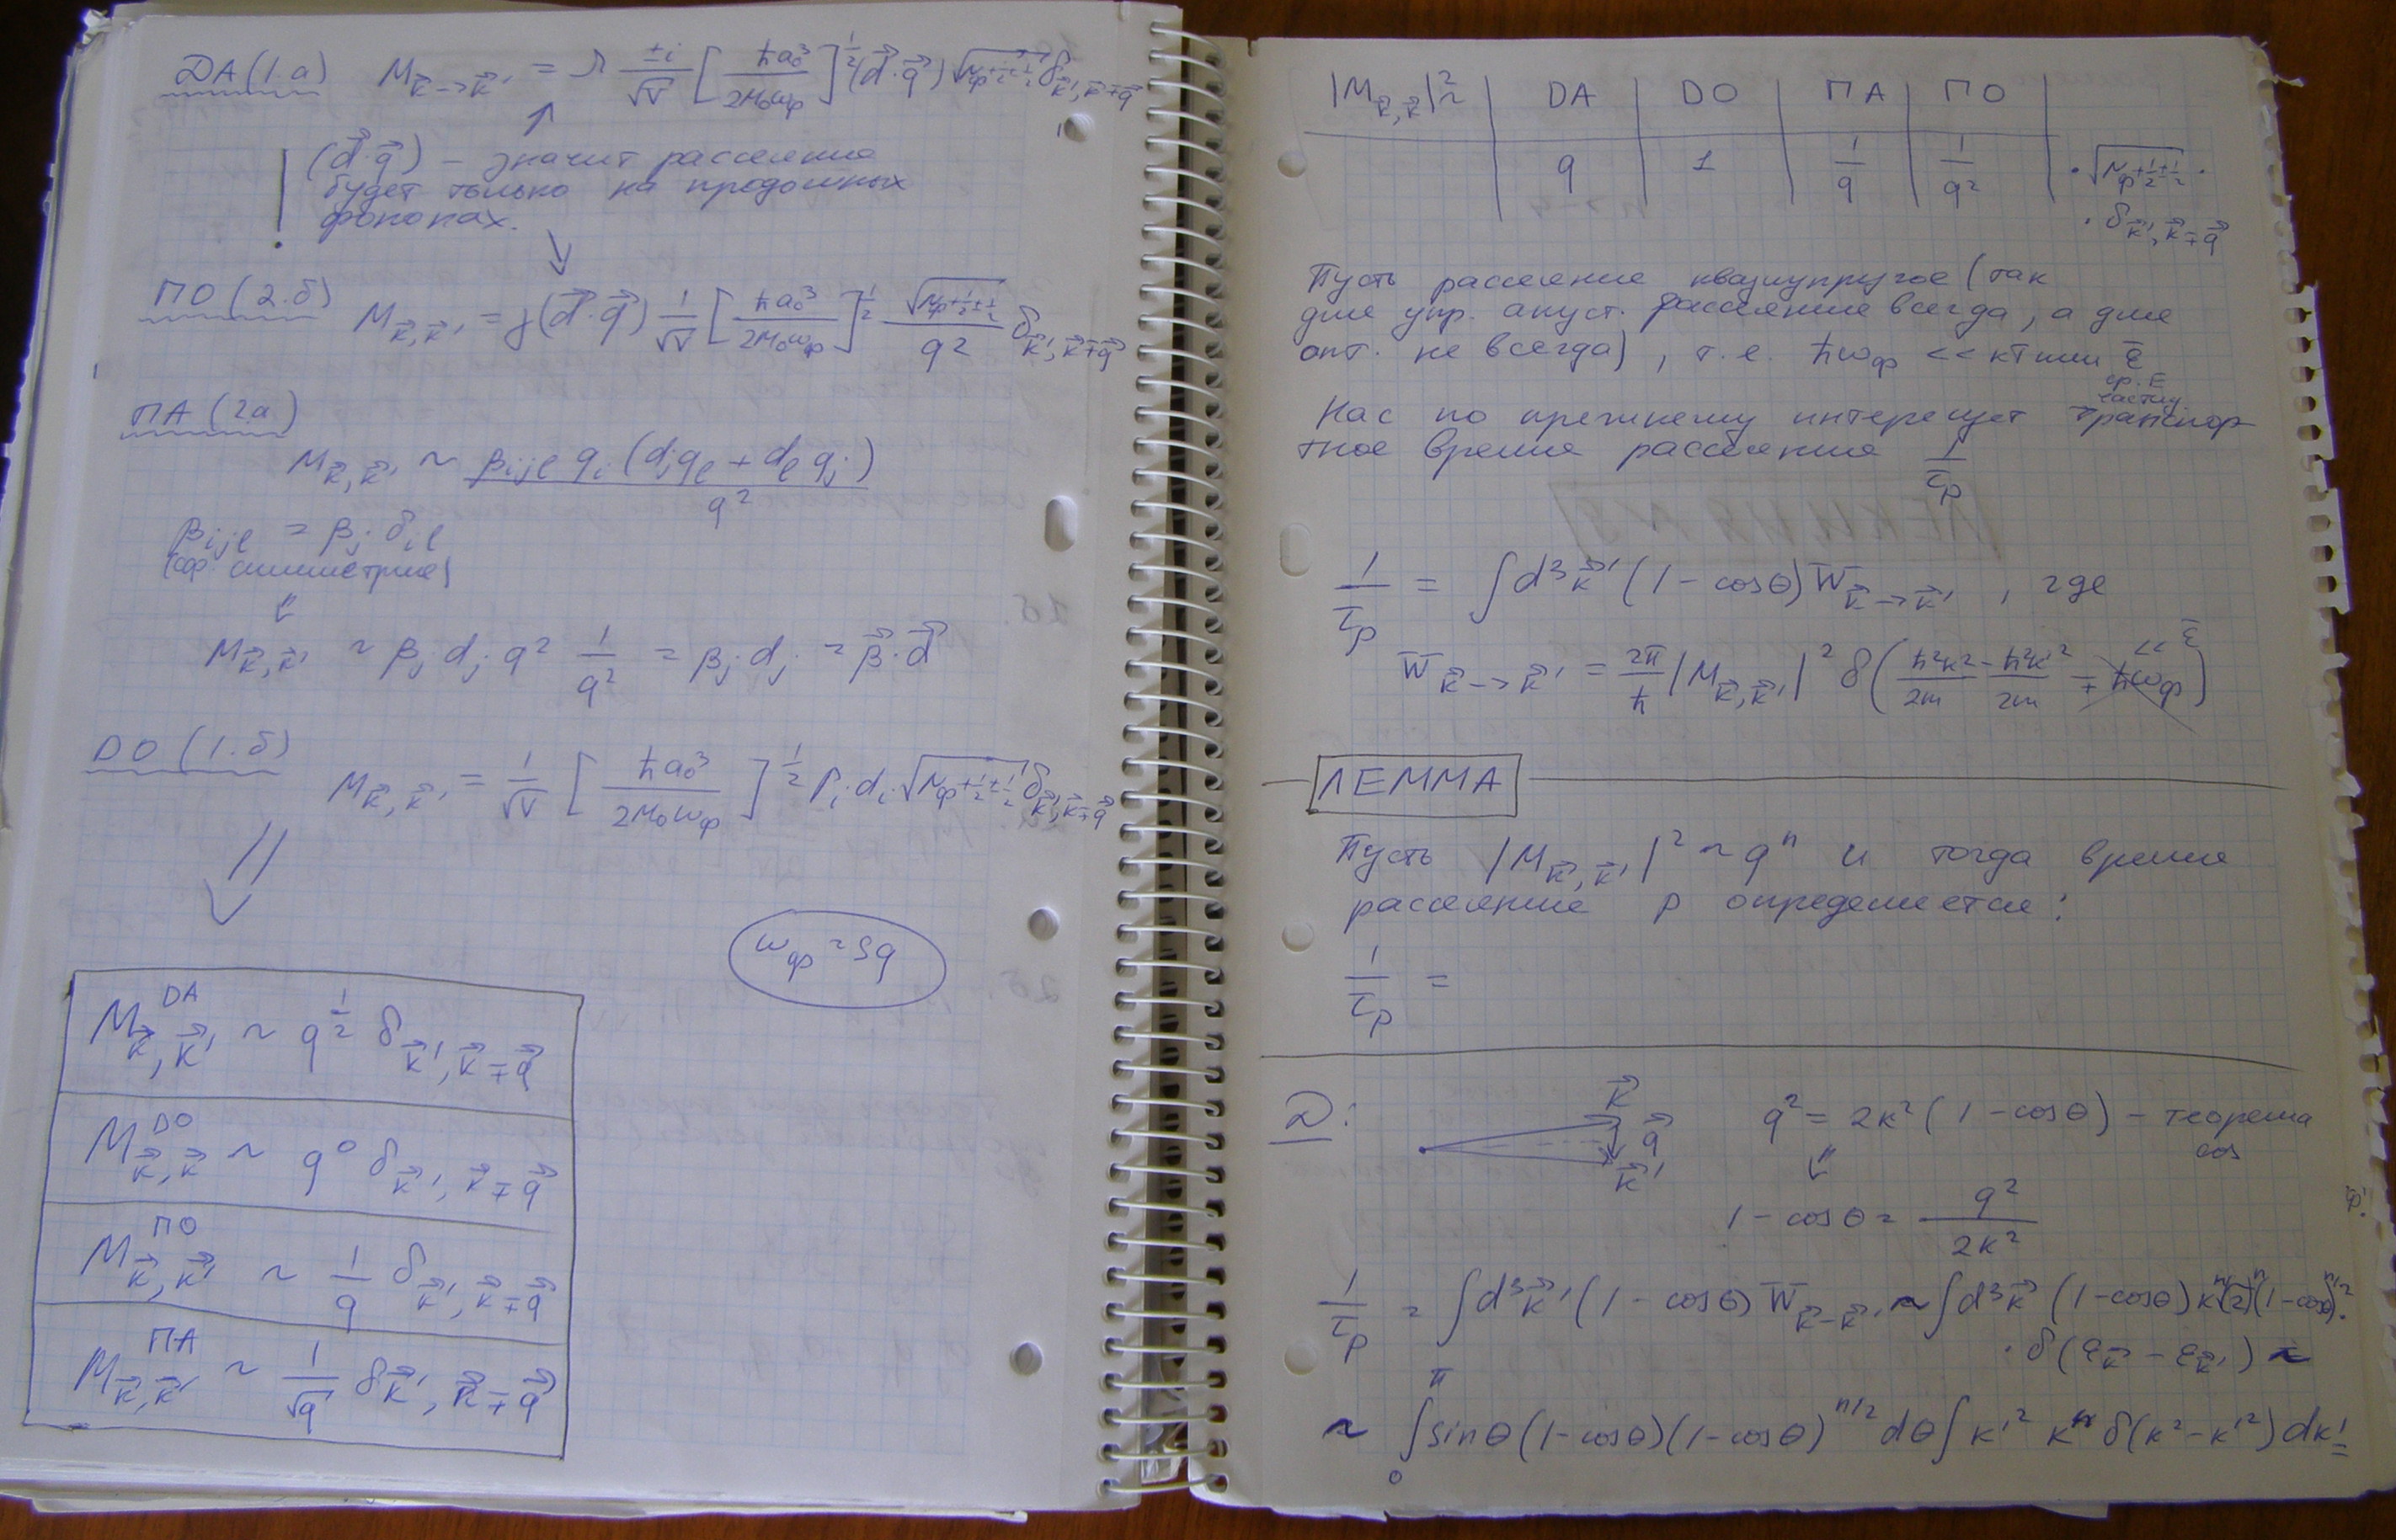 DA (1.а) M_{k→k'} = λ ±i/√V [ħa₀³/2M₀ω_ф]^{1/2} (d⃗·q⃗) √(N_ф+½±½) δ_{k⃗', k⃗∓q⃗}
↑
! (d⃗·q⃗) – значит рассеяние
будет только на продольных
фононах.
ПО (2.б) M_{k⃗,k⃗'} = γ(d⃗·q⃗) 1/√V [ħa₀³/2M₀ω_ф]^{1/2} √(N_ф+½±½)/q² δ_{k⃗', k⃗∓q⃗}
ПА (2а)
M_{k⃗,k⃗'} ~ β_{ijl} q_i (d_j q_l + d_l q_j) / q²
β_{ijl} = β_j δ_{il}
(сф. симметрия)
M_{k⃗,k⃗'} ~ β_j d_j q² 1/q² = β_j d_j = β⃗·d⃗
DO (1.б)
M_{k⃗,k⃗'} = 1/√V [ħa₀³/2M₀ω_ф]^{1/2} P_i d_i √(N_ф+½±½) δ_{k⃗', k⃗∓q⃗}
ω_ф ~ Sq
M^{DA}_{k⃗,k⃗'} ~ q^{1/2} δ_{k⃗', k⃗∓q⃗}
M^{DO}_{k⃗,k⃗} ~ q⁰ δ_{k⃗', k⃗∓q⃗}
M^{ПО}_{k⃗,k⃗'} ~ 1/q δ_{k⃗', k⃗∓q⃗}
M^{ПА}_{k⃗,k⃗'} ~ 1/√q δ_{k⃗', k⃗∓q⃗}
|M_{k⃗,k⃗'}|² ~ | DA | DO | ПА | ПО |
| q | 1 | 1/q | 1/q² | · √(N_ф+½±½) ·
· δ_{k⃗', k⃗∓q⃗}
Пусть рассеяние квазиупругое (так
для упр. акуст. рассеяние всегда, а для
опт. не всегда), т.е. ħω_ф << kT или ε̄
ср. E
частиц
Нас по прежнему интересует транспор
тное время рассеяния 1/τ_p
1/τ_p = ∫d³k⃗' (1 - cosθ) W_{k⃗→k⃗'} , где
W_{k⃗→k⃗'} = 2π/ħ |M_{k⃗,k⃗'}|² δ(ħ²k²/2m - ħ²k'²/2m ∓ ħω_ф) << ε̄
ЛЕММА
Пусть |M_{k⃗,k⃗'}|² ~ qⁿ и тогда время
рассеяние p определяется:
1/τ_p =
D: k⃗ q⃗ k⃗' q² = 2k² (1 - cosθ) – теорема
cos
1 - cosθ = q²/2k²
1/τ_p = ∫d³k⃗' (1 - cosθ) W_{k⃗-k⃗'} ~ ∫d³k⃗ (1-cosθ) kⁿ(2)ⁿ(1-cosθ)^{n/2} ·
· δ(ε_{k⃗} - ε_{k⃗'}) ~
~ ∫₀^π sinθ (1-cosθ)(1-cosθ)^{n/2} dθ ∫ k'² kⁿ δ(k²-k'²) dk' =